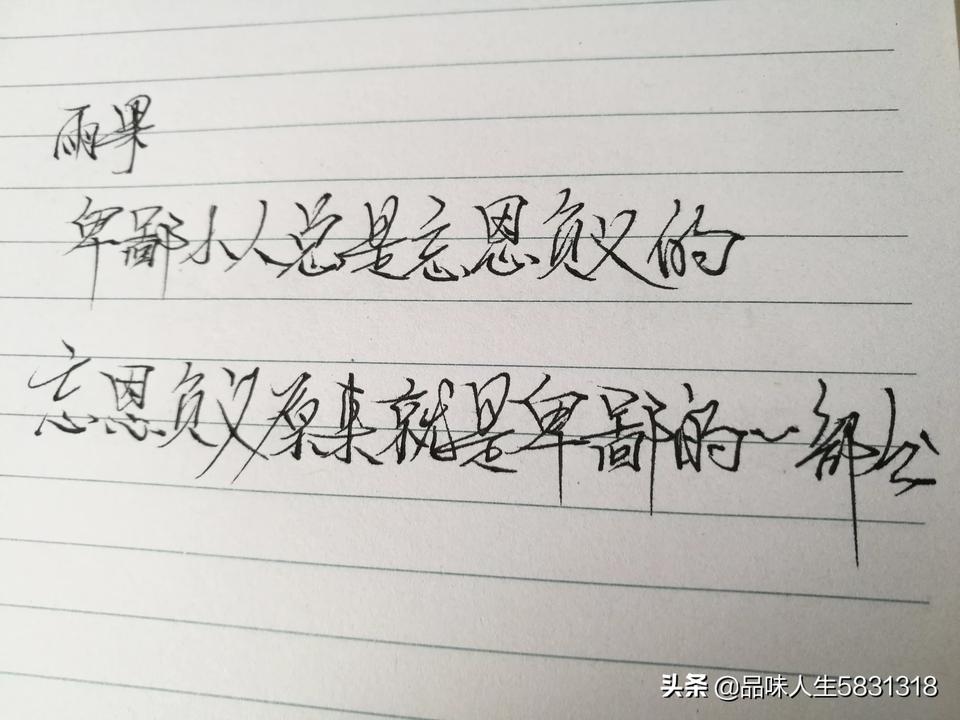 雨果
卑鄙小人总是忘恩负义的
忘恩负义原来就是卑鄙的一部分
头条 @品味人生5831318